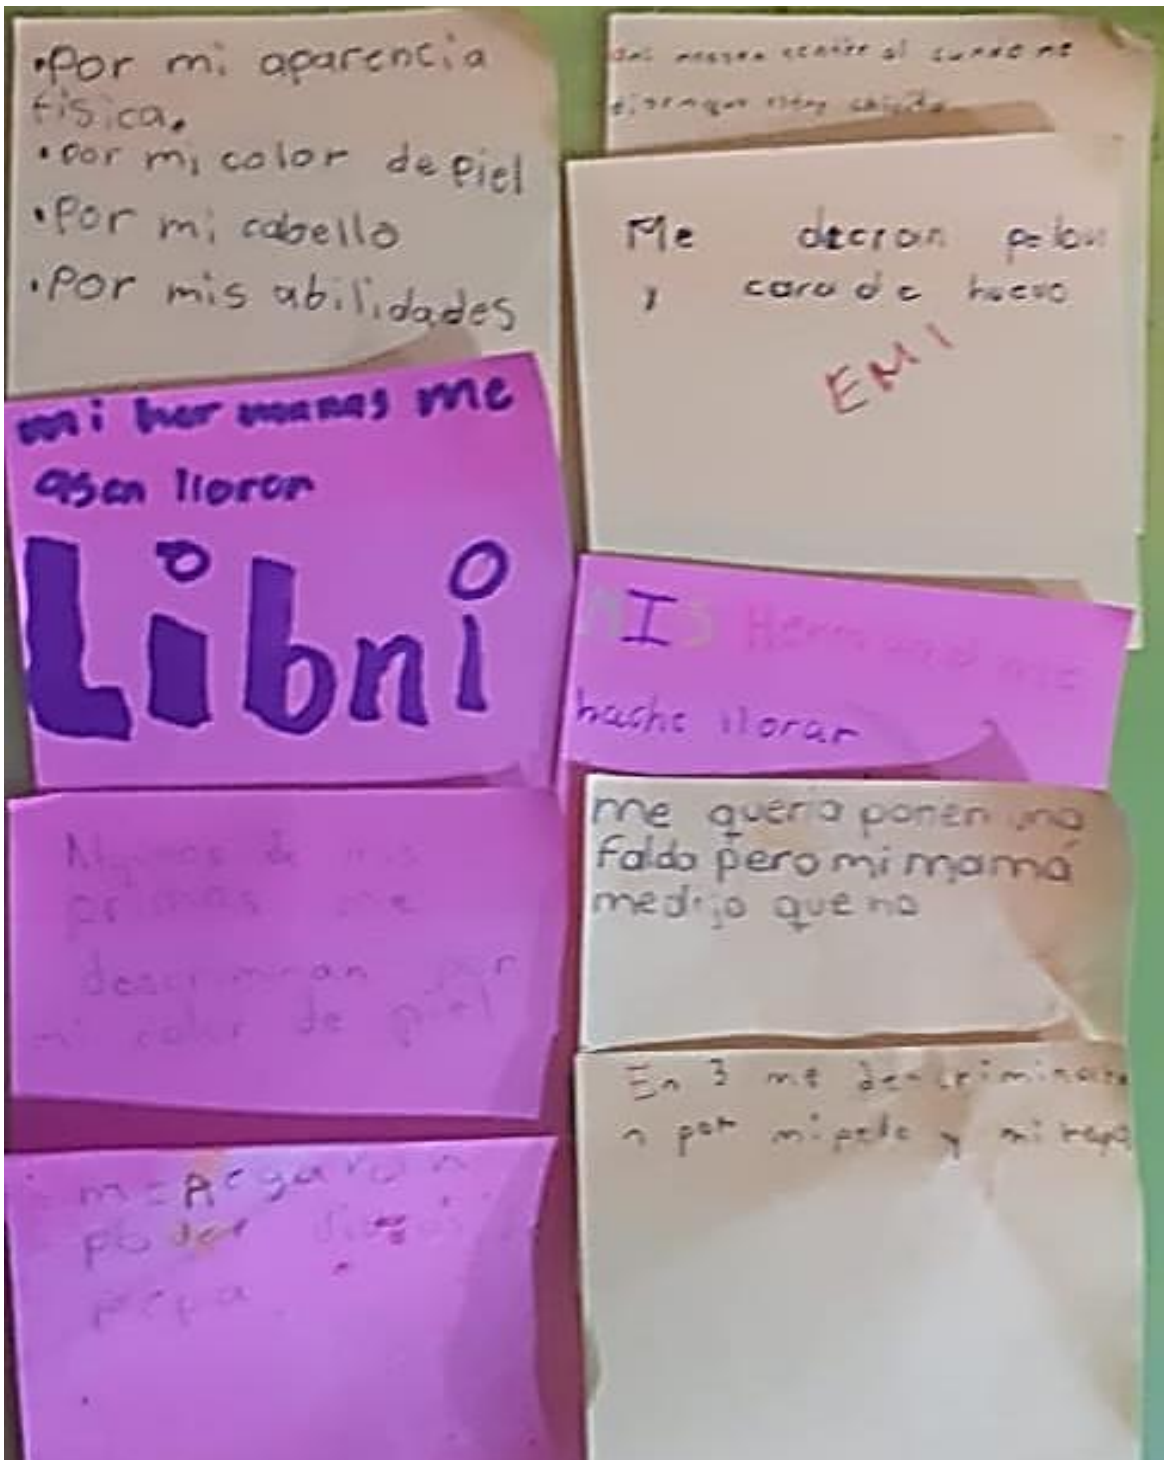 •Por mi aparencia
fisica.
•Por mi color de piel
•Por mi cabello
•Por mis abilidades
mi hermanas me
asen llorar
Libni
Algunos de mis
primas me
descriminan por
mi color de piel
me pegaron
pepa
me
Me decian pelon
y cara de huevo
EMI
MIS Hermanas me
hache llorar
me queria ponen una
falda pero mi mamá
me dijo que no
En 3 me descriminaro
n por mi pelo y mi ropa